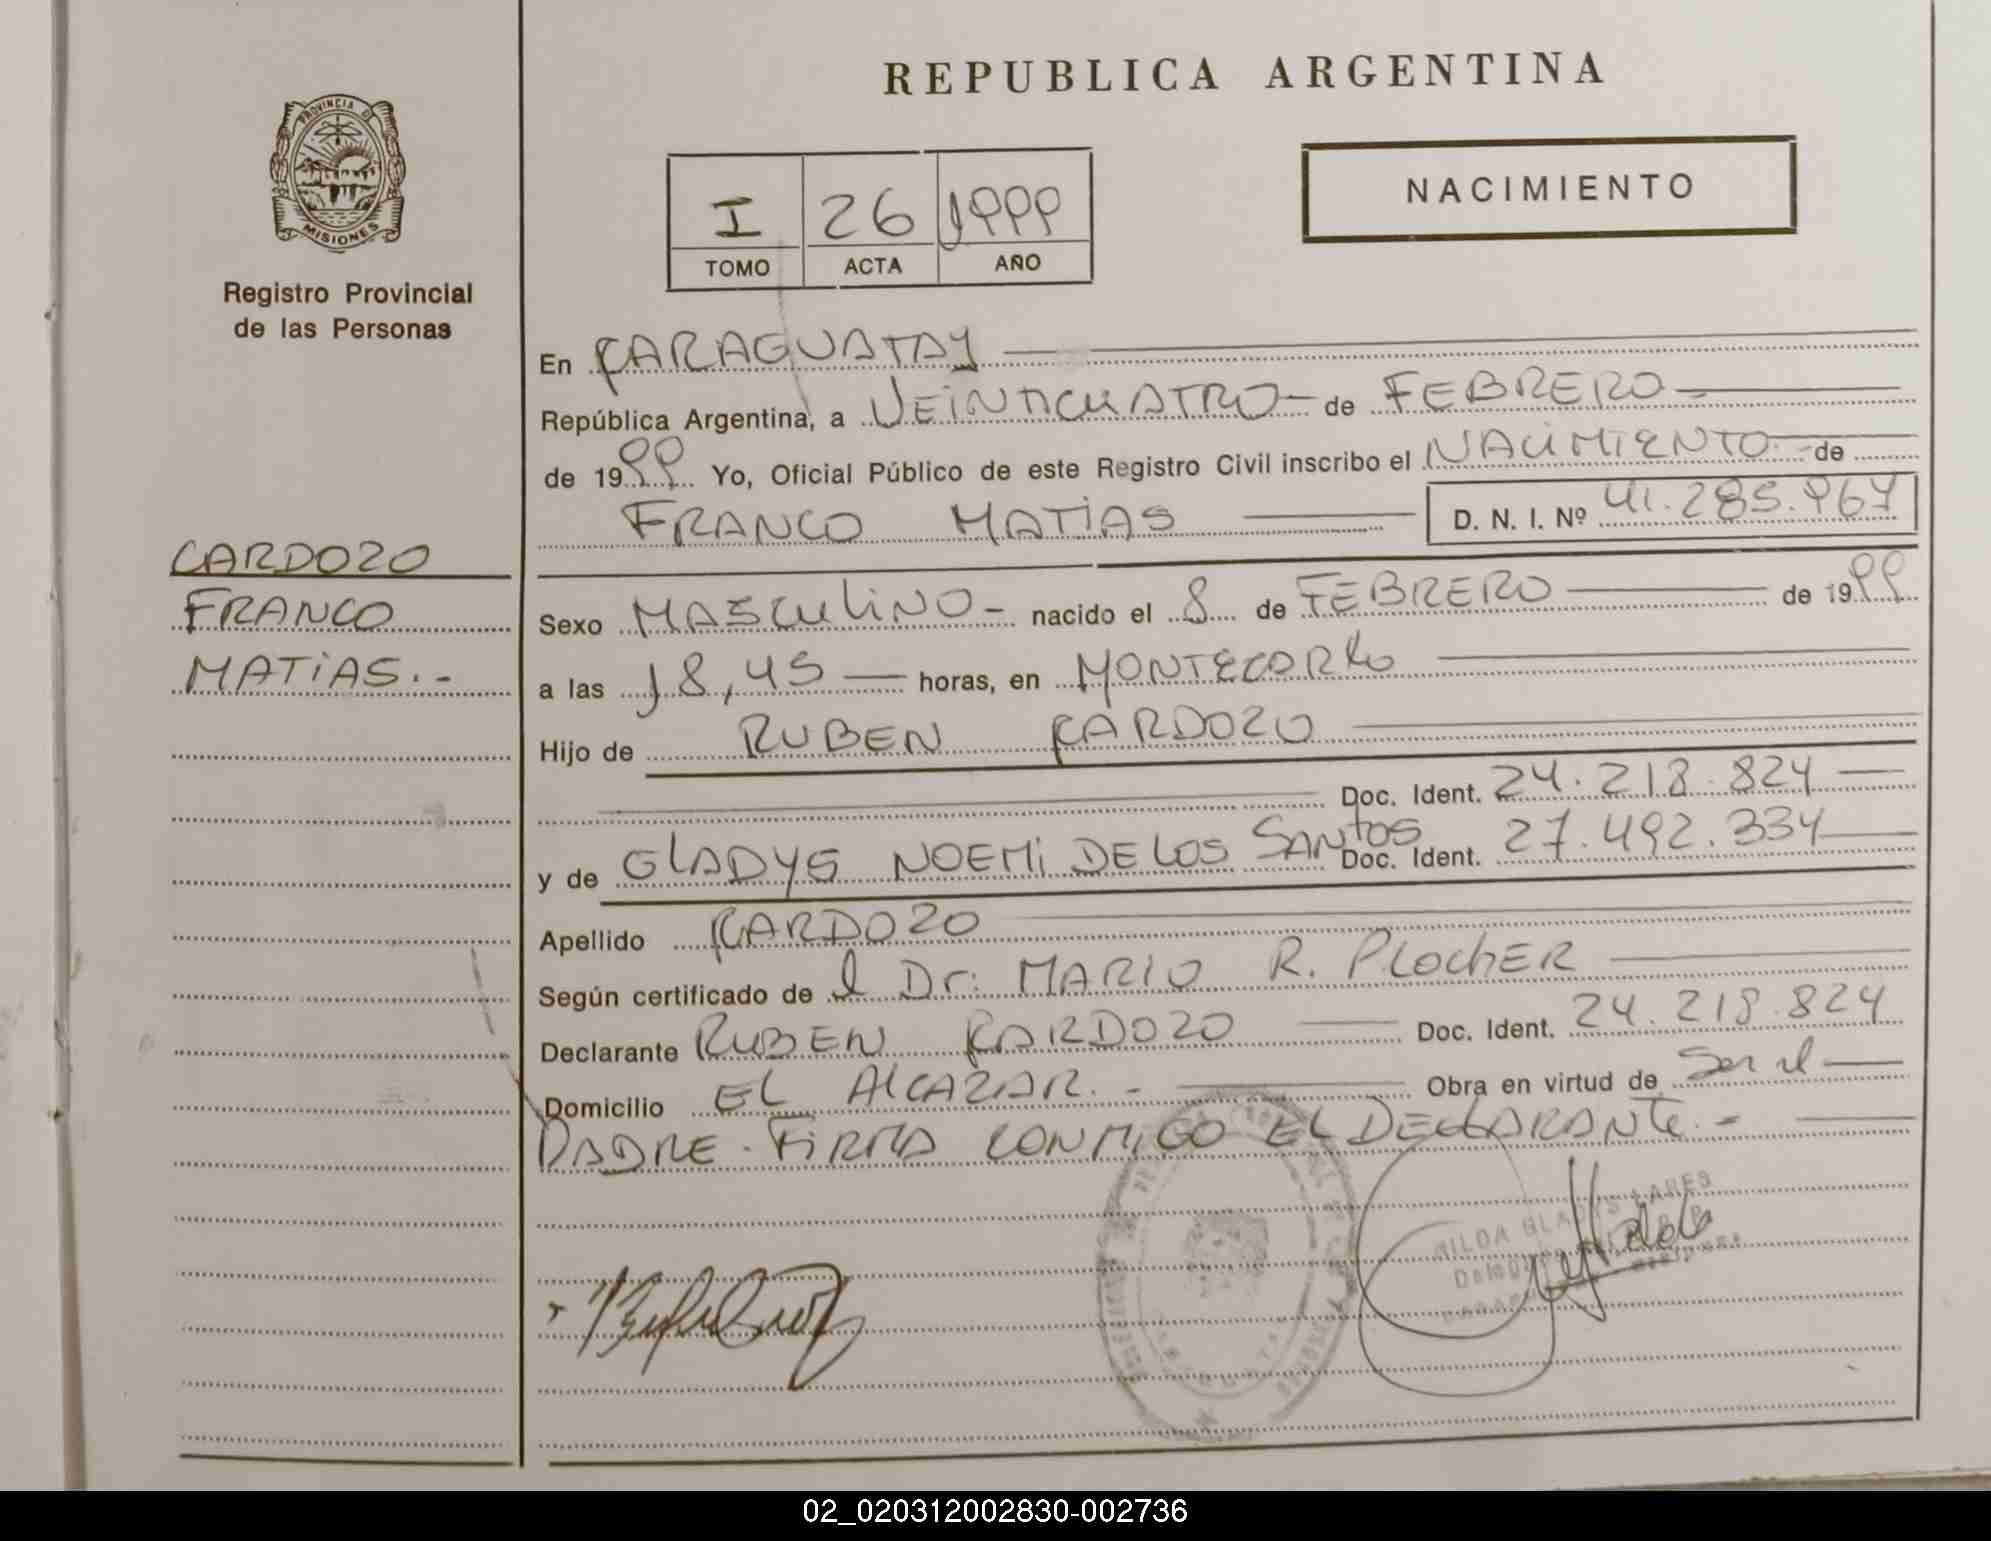 REPUBLICA ARGENTINA
PROVINCIA DE
MISIONES
Registro Provincial
de las Personas
I 26 1999
TOMO ACTA AÑO
NACIMIENTO
En CARAGUATAY
República Argentina, a VEINTICUATRO de FEBRERO
de 1999 Yo, Oficial Público de este Registro Civil inscribo el NACIMIENTO de
FRANCO MATIAS D. N. I. Nº 41.285.967
CARDOZO
FRANCO
MATIAS.-
Sexo MASCULINO- nacido el 8 de FEBRERO de 1999
a las 18,45 horas, en MONTECARLO
Hijo de RUBEN CARDOZO
Doc. Ident. 24.218.824
y de GLADYS NOEMI DE LOS SANTOS Doc. Ident. 27.492.334
Apellido CARDOZO
Según certificado de l Dr. MARIO R. PLOCHER
Declarante RUBEN CARDOZO Doc. Ident. 24.218.824
Domicilio EL ALCAZAR.- Obra en virtud de Ser el
PADRE. FIRMA CONMIGO EL DECLARANTE.-
HILDA GLADYS LARES
02_020312002830-002736